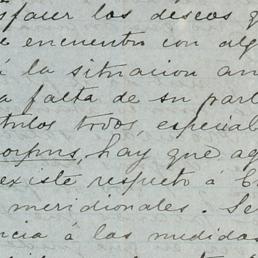 sfacer los deseos q
e encuentro con alg
á la situacion an
a falta de su part
ítulos todos, especial
orpus, hay que ag
existe respecto á C
meridionales. Se
ncia á las medidas